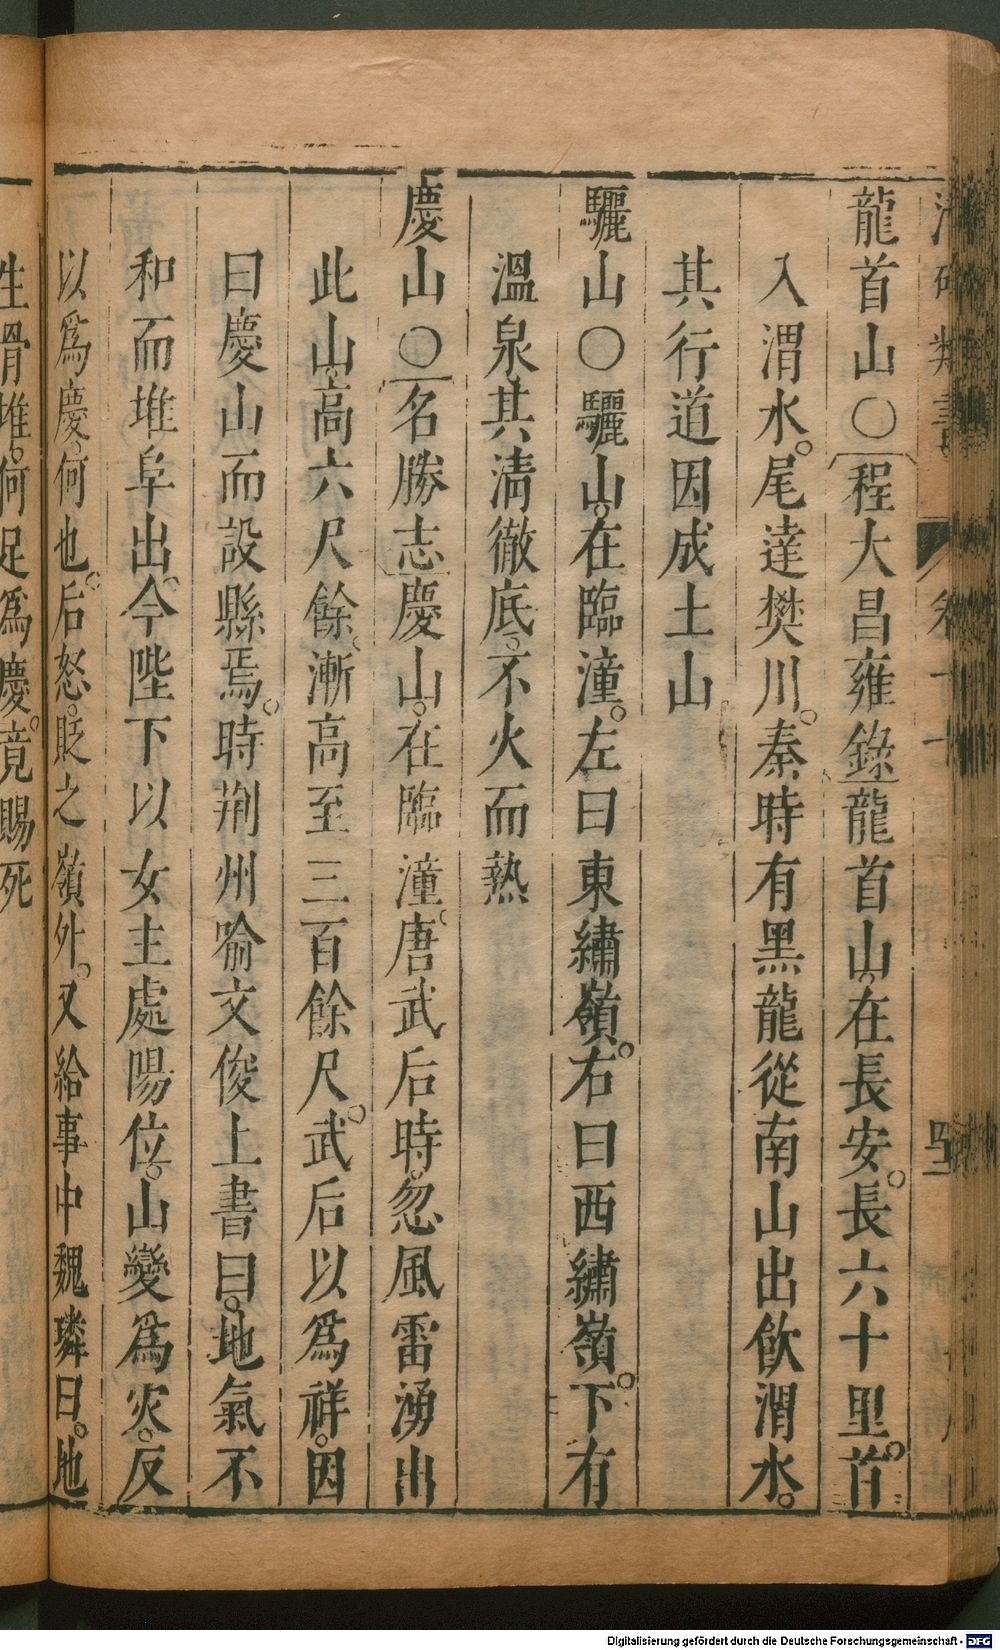 龍首山○程大昌雍錄龍首山在長安。長六十里。首
入渭水。尾達樊川。秦時有黑龍從南山出飲渭水。
其行道因成土山
驪山○驪山。在臨潼。左曰東繡嶺。右曰西繡嶺。下有
溫泉其清徹底。不火而熱
慶山○名勝志慶山。在臨潼。唐武后時。忽風雷湧出
此山。高六尺餘。漸高至三百餘尺。武后以為祥。因
曰慶山而設縣焉。時荆州喻文俊上書曰。地氣不
和而堆阜出。今陛下以女主處陽位。山變為灾。反
以為慶。何也。后怒。貶之嶺外。又給事中魏璘曰。地
生骨堆。何足為慶。竟賜死
Digitalisierung gefördert durch die Deutsche Forschungsgemeinschaft - DFG